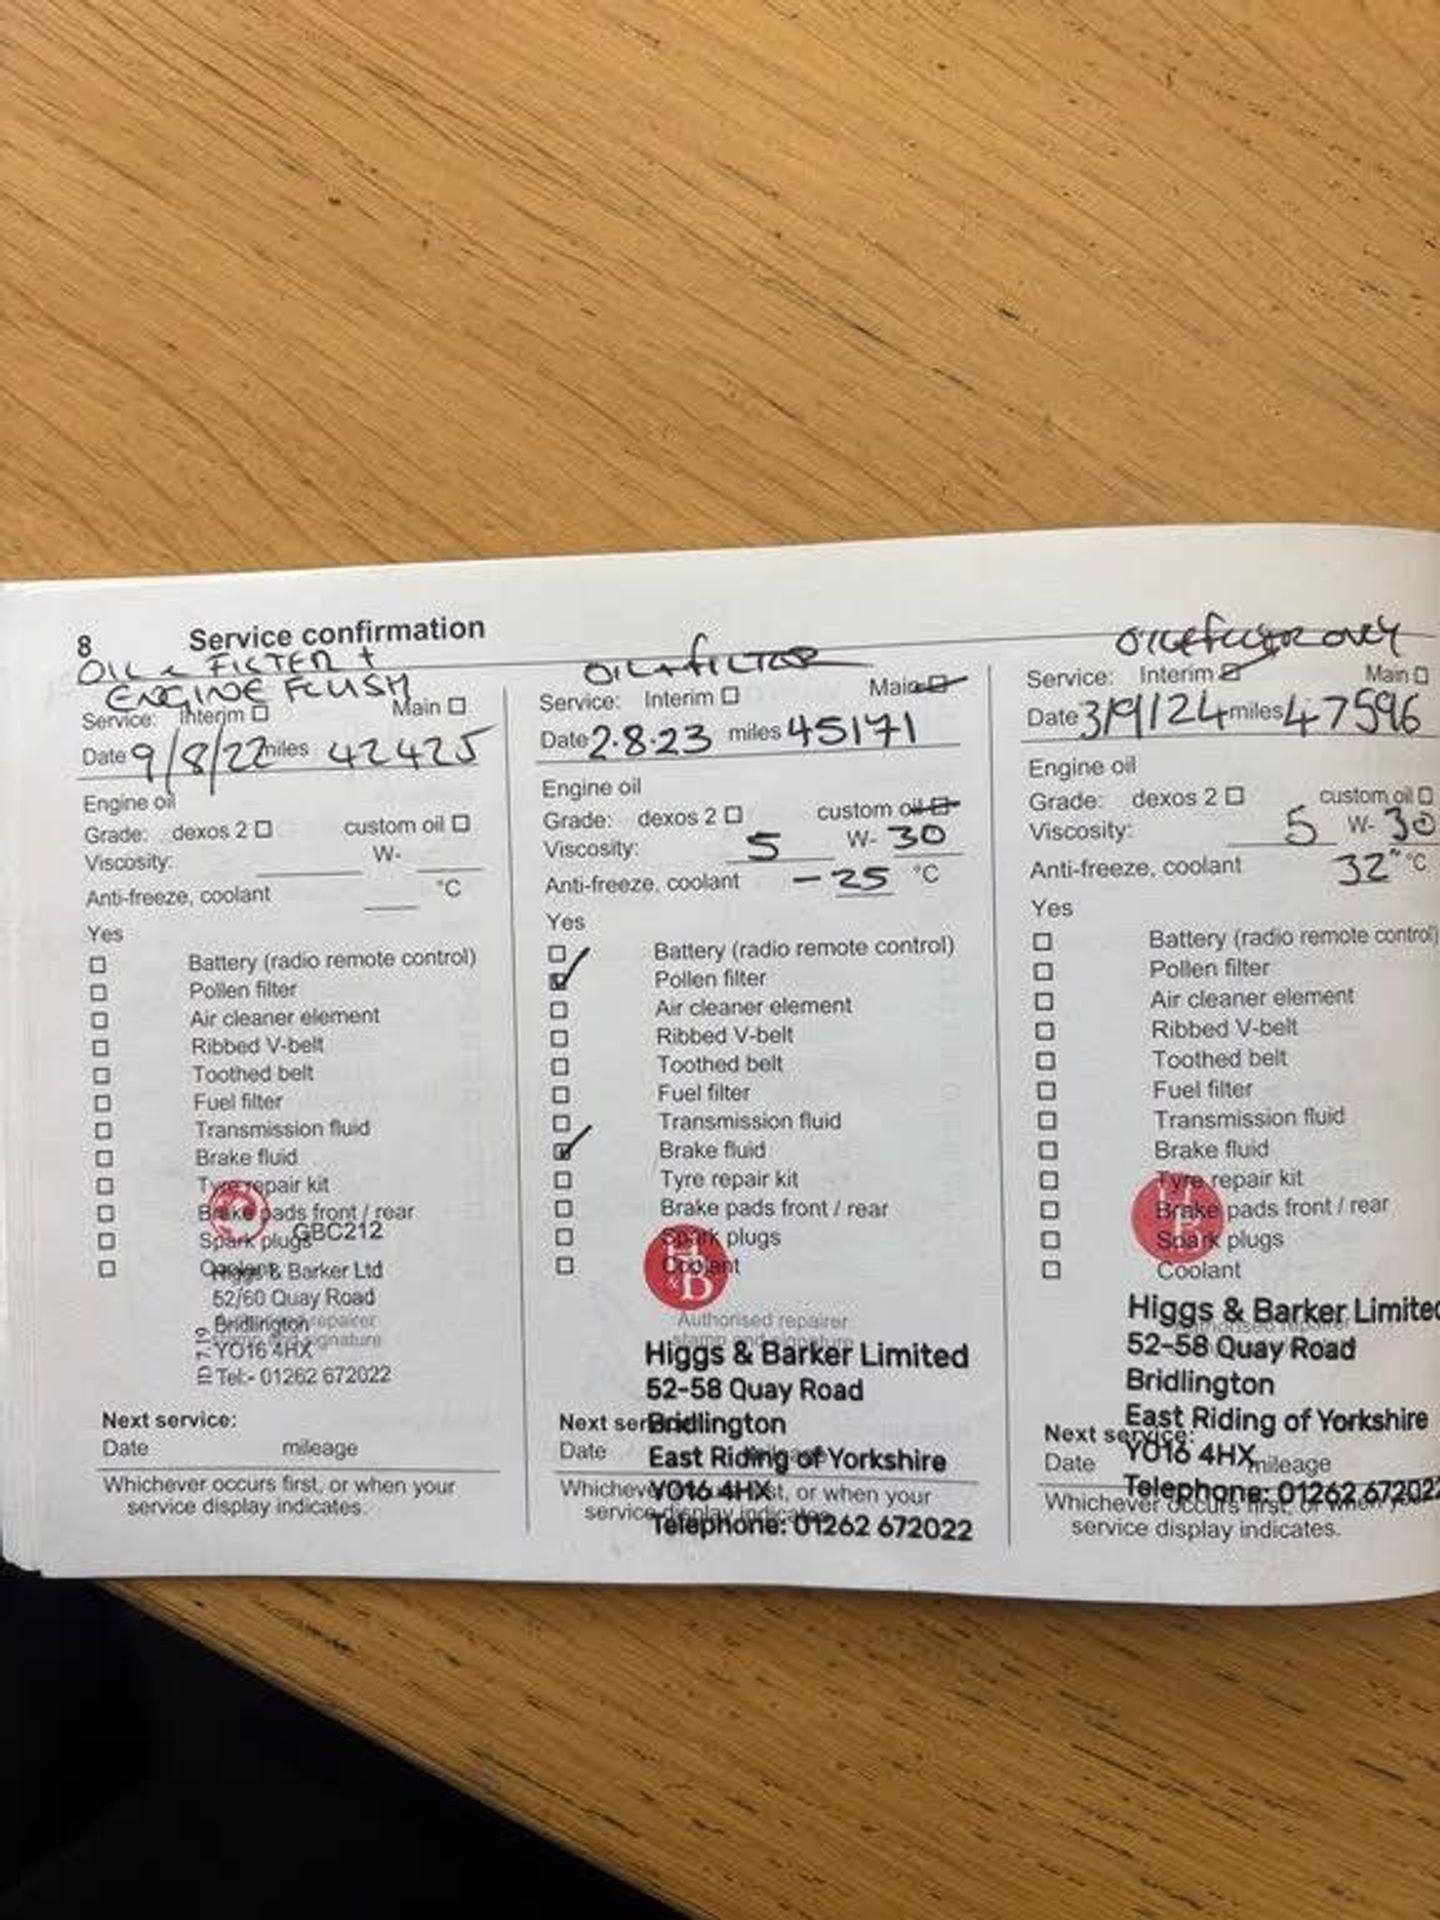 8 Service confirmation
OIL & FILTER +
ENGINE FLUSH
Service: Interim Main
Date 9/8/22 miles 42425
Engine oil
Grade: dexos 2 custom oil
Viscosity: W-
Anti-freeze, coolant °C
Yes
Battery (radio remote control)
Pollen filter
Air cleaner element
Ribbed V-belt
Toothed belt
Fuel filter
Transmission fluid
Brake fluid
Tyre repair kit
Brake pads front / rear
GBC212
Spark plugs
Coolant
Higgs & Barker Ltd
52/60 Quay Road
Bridlington
repairer
stamp and signature
YO16 4HX
ID 7.19
Tel:- 01262 672022
Next service:
Date mileage
Whichever occurs first, or when your
service display indicates.
OIL + FILTER
Service: Interim Main
Date 2.8.23 miles 45171
Engine oil
Grade: dexos 2 custom oil
Viscosity: 5 W- 30
Anti-freeze, coolant -25 °C
Yes
Battery (radio remote control)
Pollen filter
Air cleaner element
Ribbed V-belt
Toothed belt
Fuel filter
Transmission fluid
Brake fluid
Tyre repair kit
Brake pads front / rear
Spark plugs
Coolant
H&B
Authorised repairer
stamp and signature
Higgs & Barker Limited
52-58 Quay Road
Bridlington
East Riding of Yorkshire
YO16 4HX
Telephone: 01262 672022
Next service:
Date mileage
Whichever occurs first, or when your
service display indicates.
OIL & FILTER ONLY
Service: Interim Main
Date 3/9/24 miles 47596
Engine oil
Grade: dexos 2 custom oil
Viscosity: 5 W- 30
Anti-freeze, coolant 32° °C
Yes
Battery (radio remote control)
Pollen filter
Air cleaner element
Ribbed V-belt
Toothed belt
Fuel filter
Transmission fluid
Brake fluid
Tyre repair kit
Brake pads front / rear
Spark plugs
Coolant
Higgs & Barker Limited
52-58 Quay Road
Bridlington
East Riding of Yorkshire
YO16 4HX
Telephone: 01262 672022
Next service:
Date mileage
Whichever occurs first, or when your
service display indicates.